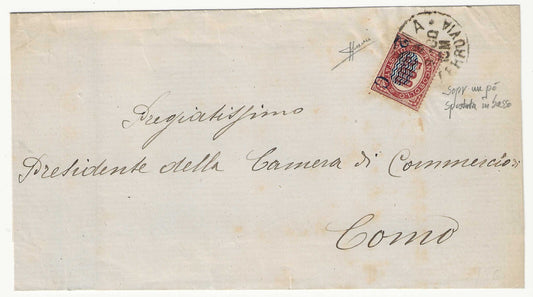 Pregiatissimo
Presidente della Camera di Commercio di
Como
Sopr. un pò
spostata in basso